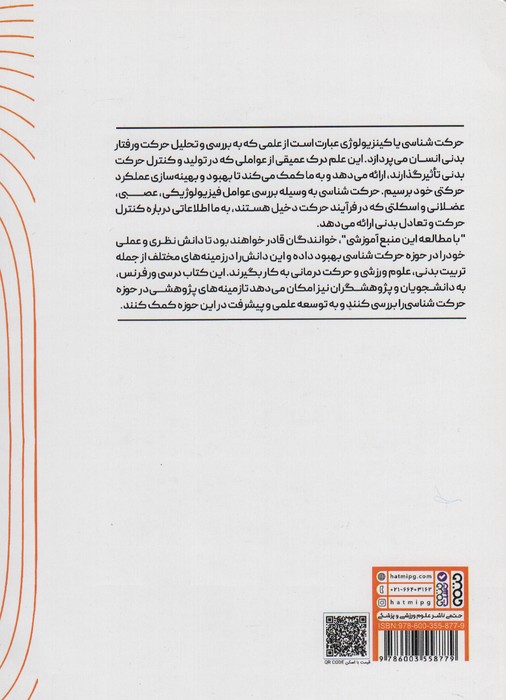 حرکت شناسی یا کینزیولوژی عبارت است از علمی که به بررسی و تحلیل حرکت و رفتار
بدنی انسان می‌پردازد. این علم درک عمیقی از عواملی که در تولید و کنترل حرکت
بدنی تأثیرگذارند، ارائه می‌دهد و به ما کمک می‌کند تا بهبود و بهینه‌سازی عملکرد
حرکتی خود برسیم. حرکت شناسی به وسیله بررسی عوامل فیزیولوژیکی، عصبی،
عضلانی و اسکلتی که در فرآیند حرکت دخیل هستند، به ما اطلاعاتی درباره کنترل
حرکت و تعادل بدنی ارائه می‌دهد.
"با مطالعه این منبع آموزشی"، خوانندگان قادر خواهند بود تا دانش نظری و عملی
خود را در حوزه حرکت شناسی بهبود داده و این دانش را در زمینه‌های مختلف از جمله
تربیت بدنی، علوم ورزشی و حرکت درمانی به کار بگیرند. این کتاب درسی و رفرنس،
به دانشجویان و پژوهشگران نیز امکان می‌دهد تا زمینه‌های پژوهشی در حوزه
حرکت شناسی را بررسی کنند و به توسعه علمی و پیشرفت در این حوزه کمک کنند.
hatmipg.com
۰۲۱-۶۶۴۰۳۱۶۲
hatmipg
حتمی
حتمی ناشر علوم ورزشی و پزشکی
ISBN: 978-600-355-877-9
9 786003 558779
قیمت با اسکن QR CODE